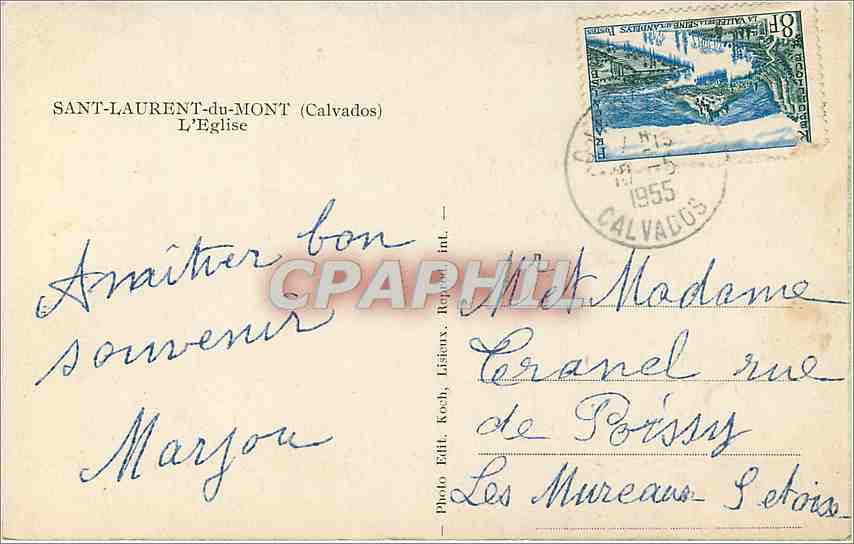 SANT-LAURENT-du-MONT (Calvados)
L'Eglise
bon
souvenir
Marjou
Photo Edit. Koch, Lisieux. Reprod. int.
8F
LA VALLEE DE LA SEINE AUX ANDELYS POSTES
REPUBLIQUE FRANCAISE
-5
1955
CALVADOS
CPAPHIL
Mr et Madame
Cranel rue
de Poissy
Les Mureaux S et oise